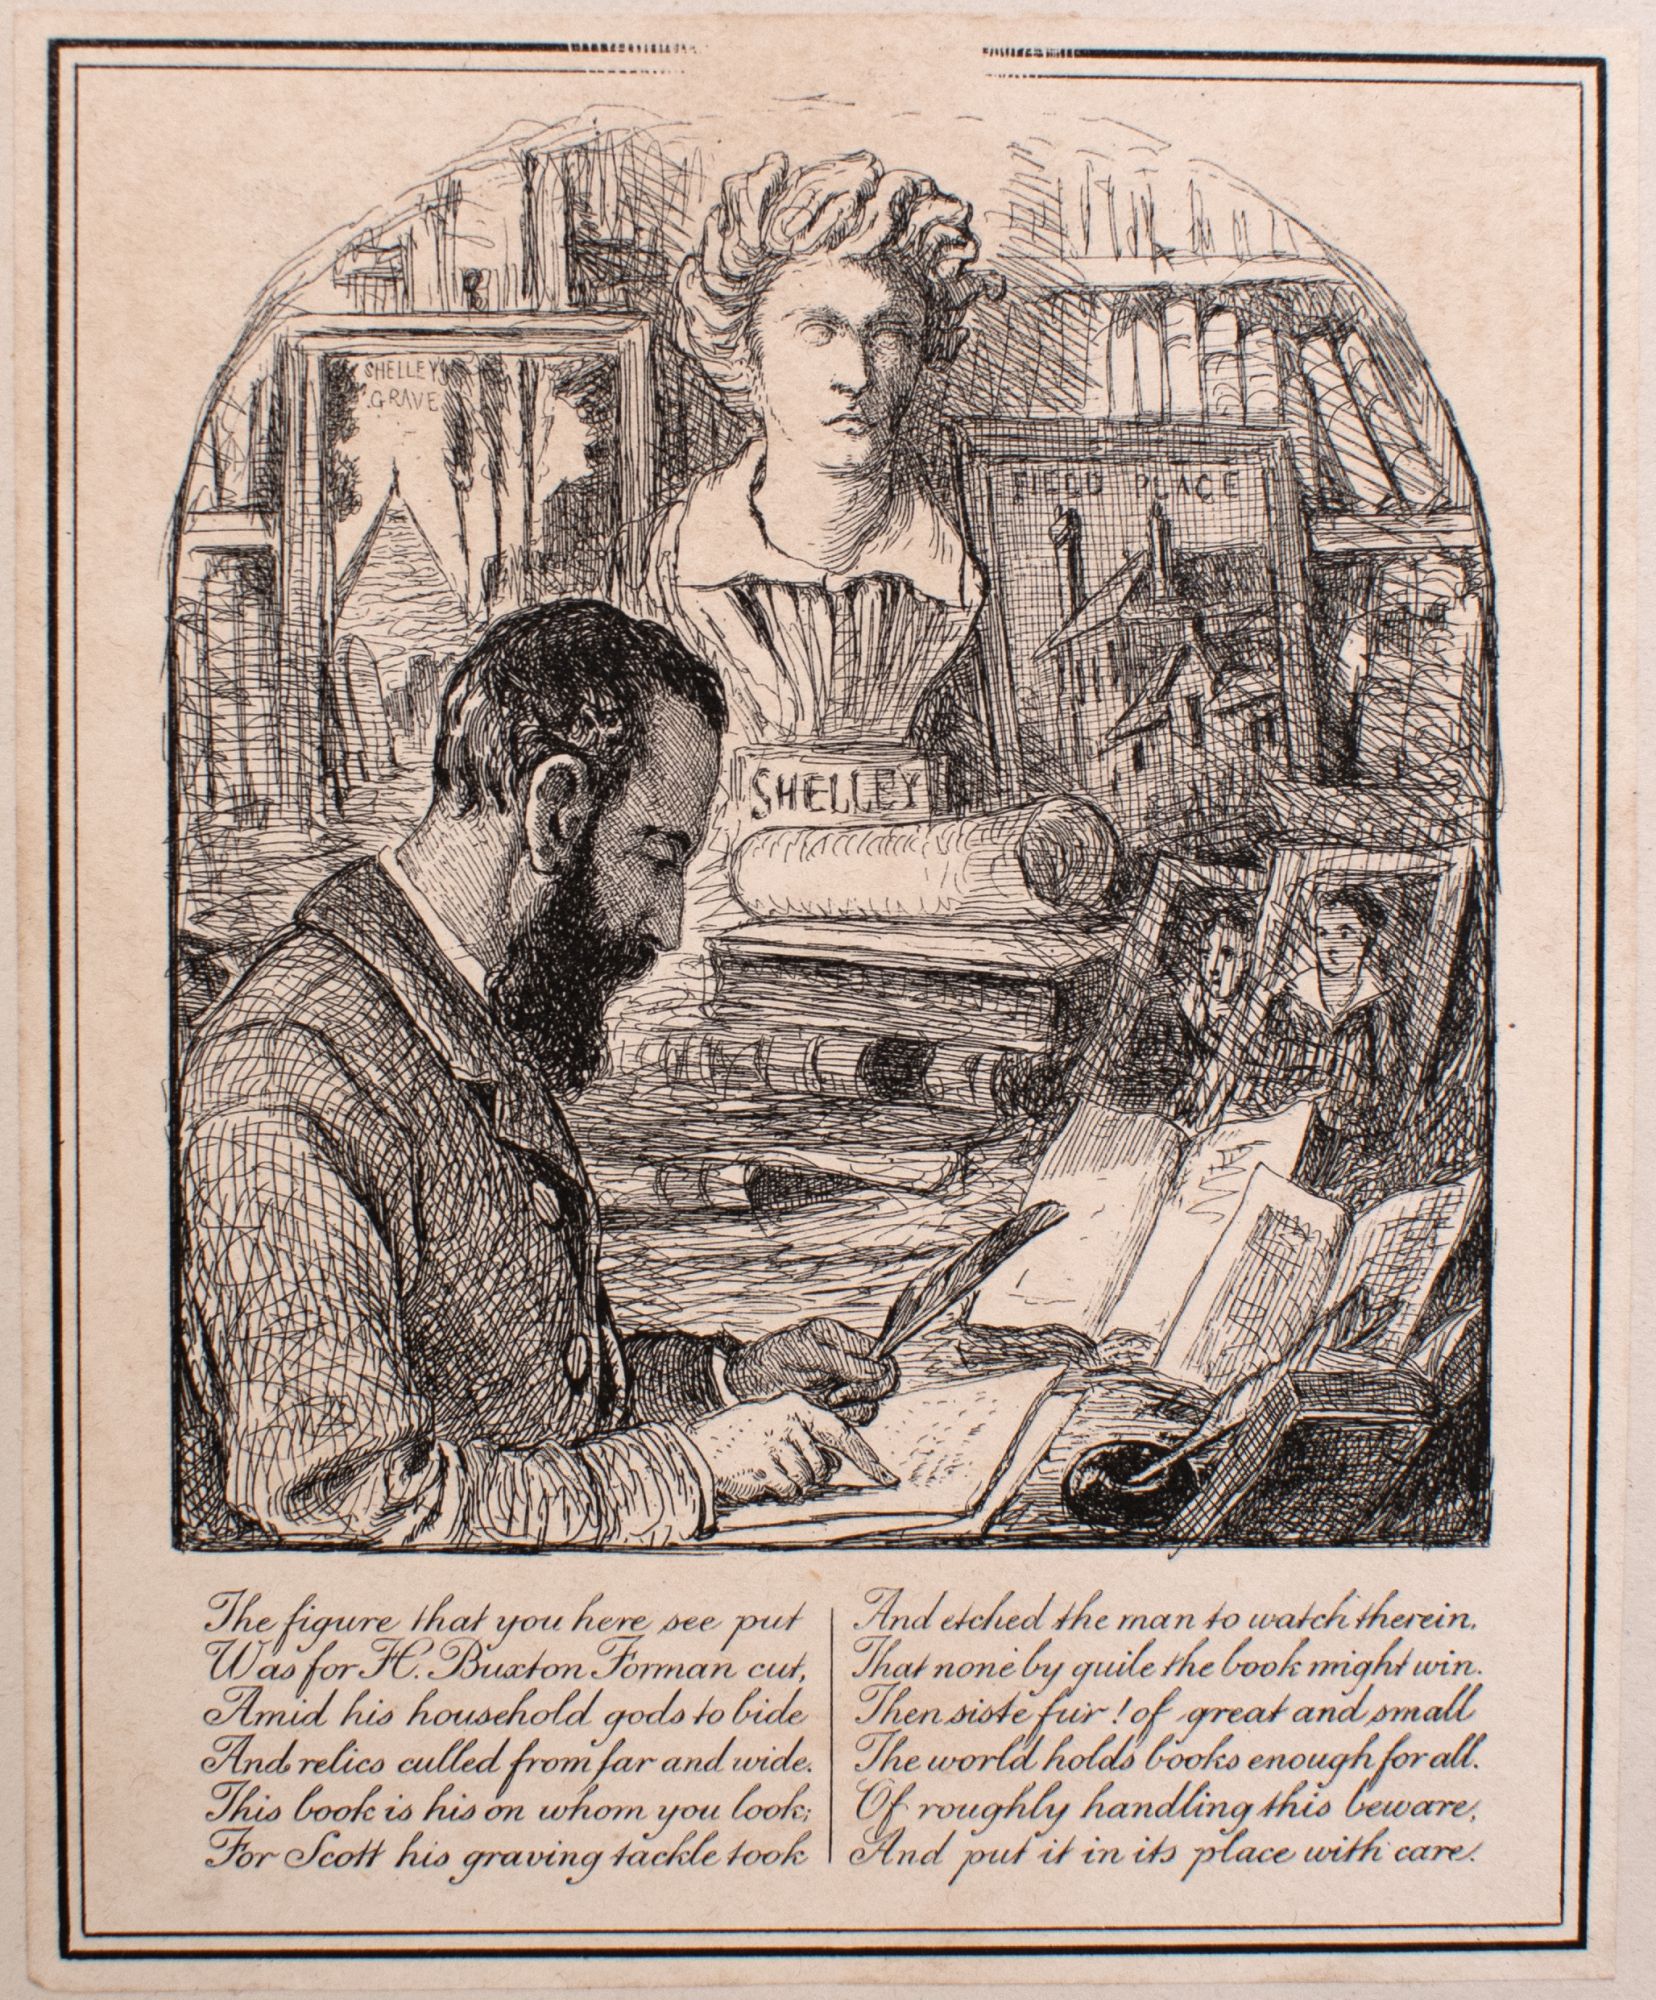 SHELLEY'S
GRAVE
FIELD PLACE
SHELLEY
The figure that you here see put
Was for H. Buxton Forman cut,
Amid his household gods to bide
And relics culled from far and wide.
This book is his on whom you look;
For Scott his graving tackle took
And etched the man to watch therein.
That none by guile the book might win.
Then siste fur! of great and small
The world holds books enough for all.
Of roughly handling this beware,
And put it in its place with care.